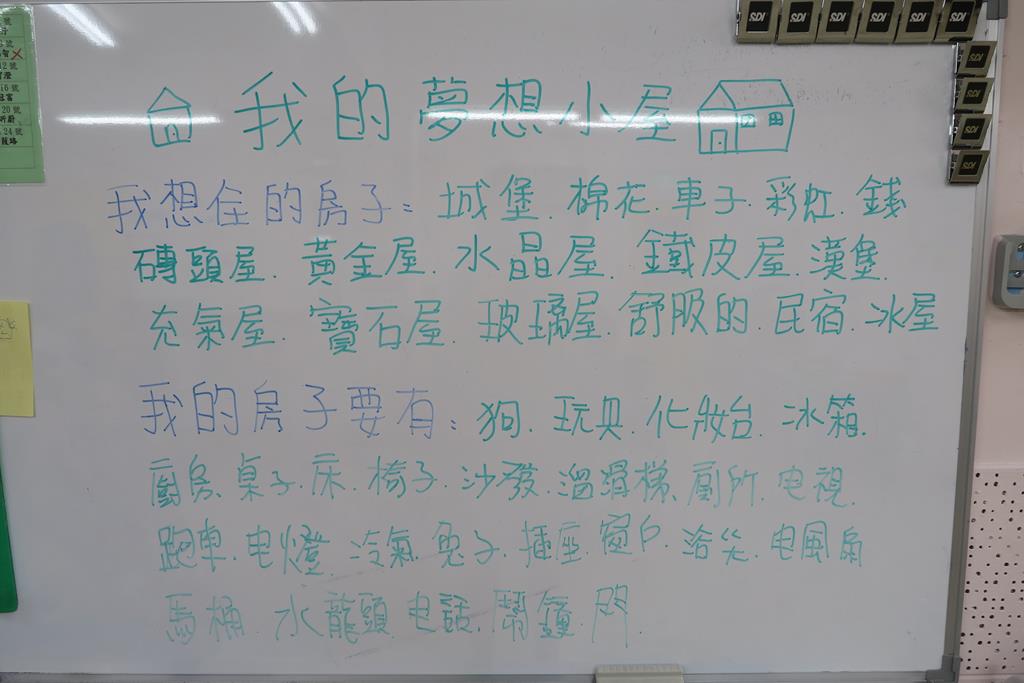 我的夢想小屋
我想住的房子: 城堡. 棉花. 車子. 彩虹. 錢
磚頭屋. 黃金屋. 水晶屋. 鐵皮屋. 漢堡.
充氣屋. 寶石屋. 玻璃屋. 舒服的. 民宿. 冰屋
我的房子要有: 狗. 玩具. 化妝台. 冰箱.
廚房. 桌子. 床. 椅子. 沙發. 溜滑梯. 廁所. 电視.
跑車. 电燈. 冷氣. 兔子. 插座. 窗户. 浴 电風扇
馬桶. 水龍頭. 电話. 鬧鐘.
SDI
SDI
SDI
SDI
SDI
SDI
SDI
SDI
SDI
SDI